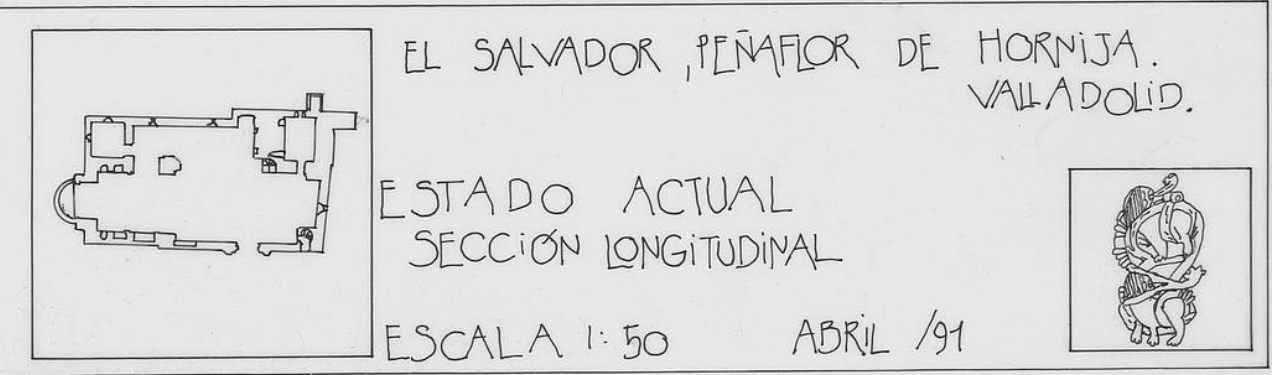 EL SALVADOR, PEÑAFLOR DE HORNIJA.
VALLADOLID.
ESTADO ACTUAL
SECCIÓN LONGITUDINAL
ESCALA 1:50 ABRIL /91